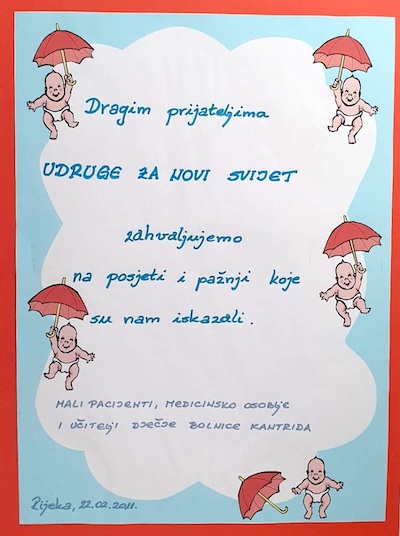 Dragim prijateljima
UDRUGE ZA NOVI SVIJET
zahvaljujemo
na posjeti i pažnji koje
su nam iskazali.
MALI PACIJENTI, MEDICINSKO OSOBLJE
I UČITELJI DJEČJE BOLNICE KANTRIDA
Rijeka, 22.02.2011.